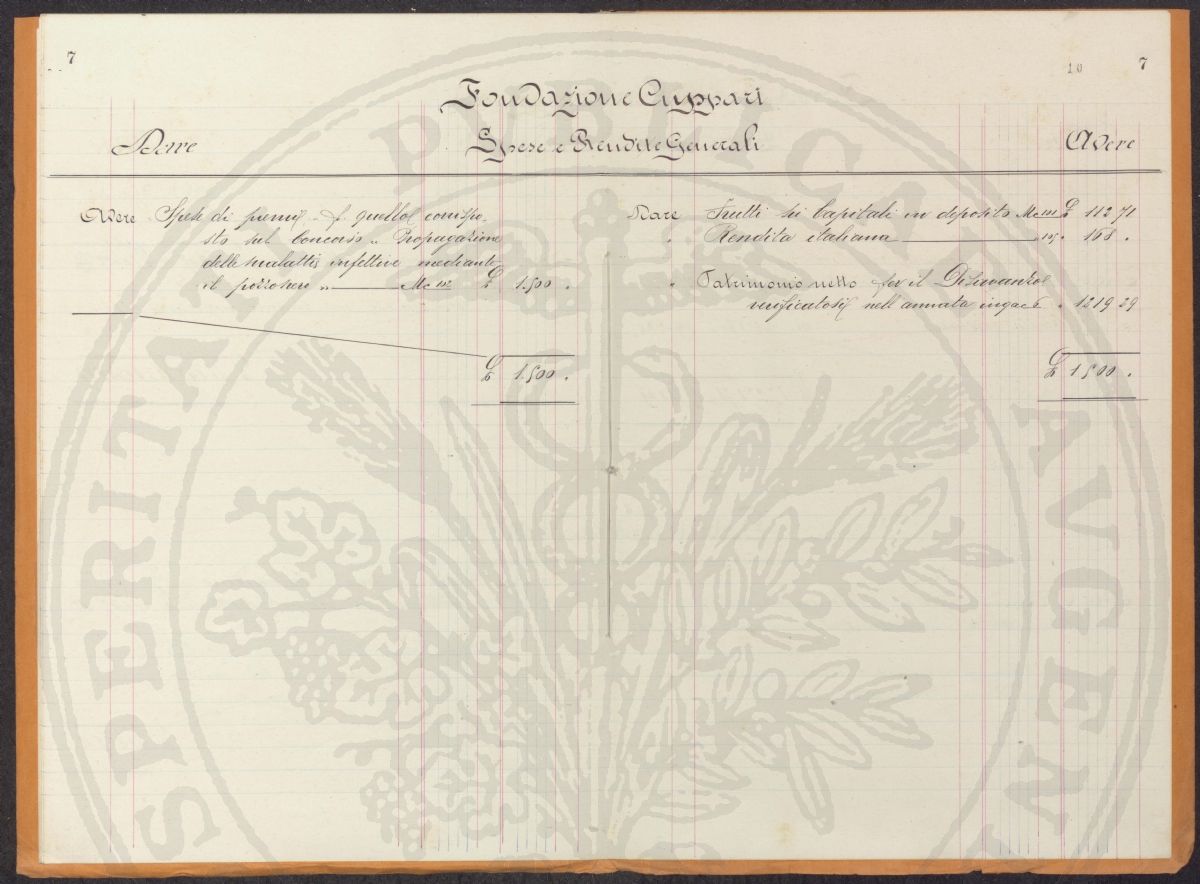 7
10 7
Fondazione Cuppari
Dare Spese e Rendite Generali Avere
Avere Spese di premij .. p. quello corrispo-
sto sul Concorso „ Propagazione
delle malattie infettive mediante
il pozzo nero „ £ 1.500 .
£ 1.500 .
Dare Frutti di Capitali in deposito £ 112 71
" Rendita italiana " 168 .
" Patrimonio netto per il Disavanzo
verificatosi nell'annata in pag. 6 " 1219 29
£ 1500 .
PVBLICAE
PERITAT
AVGEN